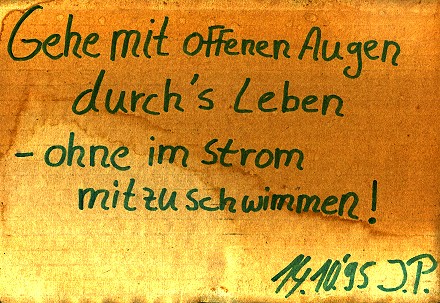 Gehe mit offenen Augen
durch's Leben
- ohne im Strom
mitzuschwimmen!
14.10.'95 J.P.